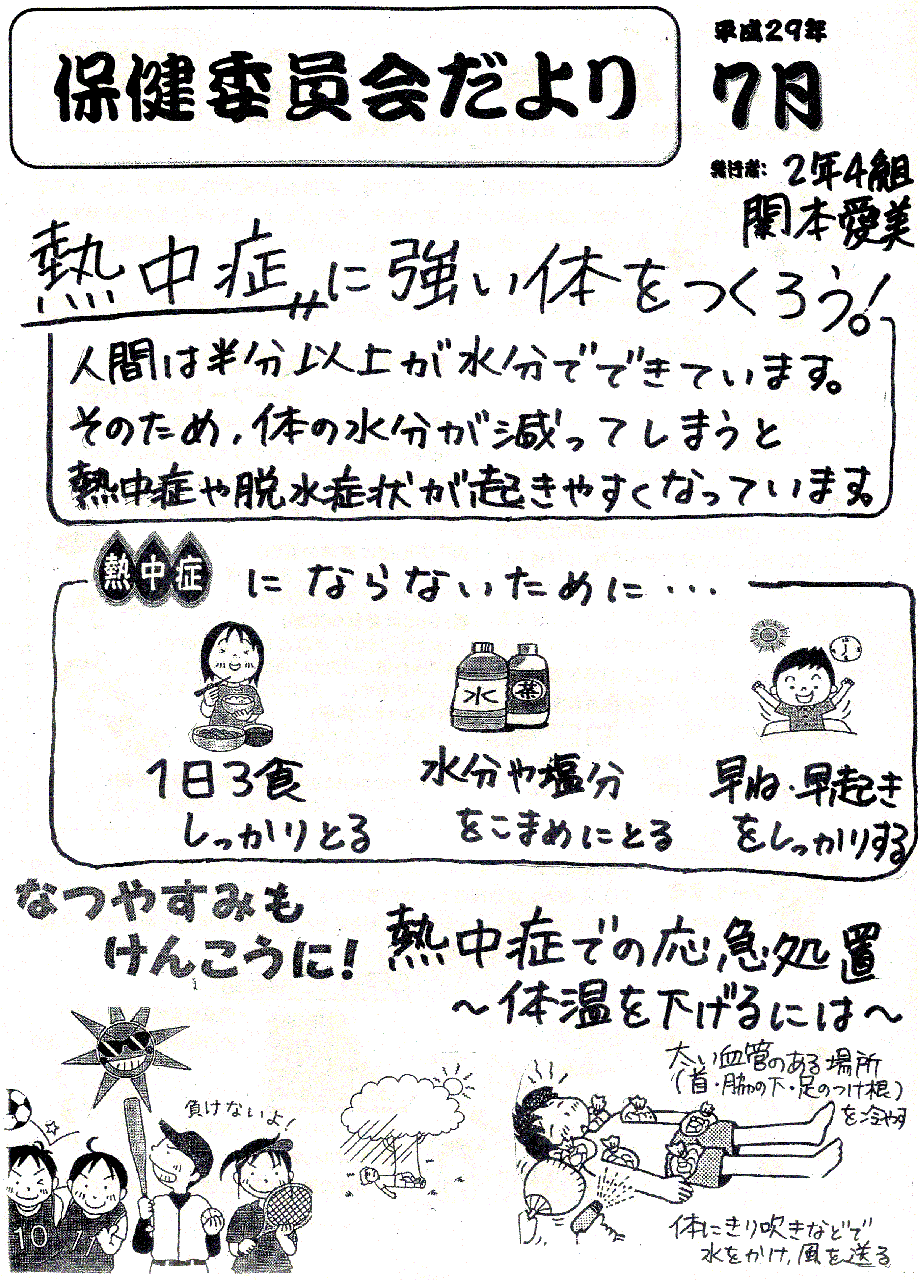 保健委員会だより
平成29年
7月
発行者: 2年4組
関本愛美
熱中症に強い体をつくろう!
人間は半分以上が水分でできています。
そのため、体の水分が減ってしまうと
熱中症や脱水症状が起きやすくなっています。
熱中症にならないために…
水
茶
1日3食
しっかりとる
水分や塩分
をこまめにとる
早ね・早起き
をしっかりする
なつやすみも
けんこうに!
熱中症での応急処置
〜体温を下げるには〜
負けないよ!
10
11
太い血管のある場所
(首・脇の下・足のつけ根)
を冷やす
体にきり吹きなどで
水をかけ,風を送る